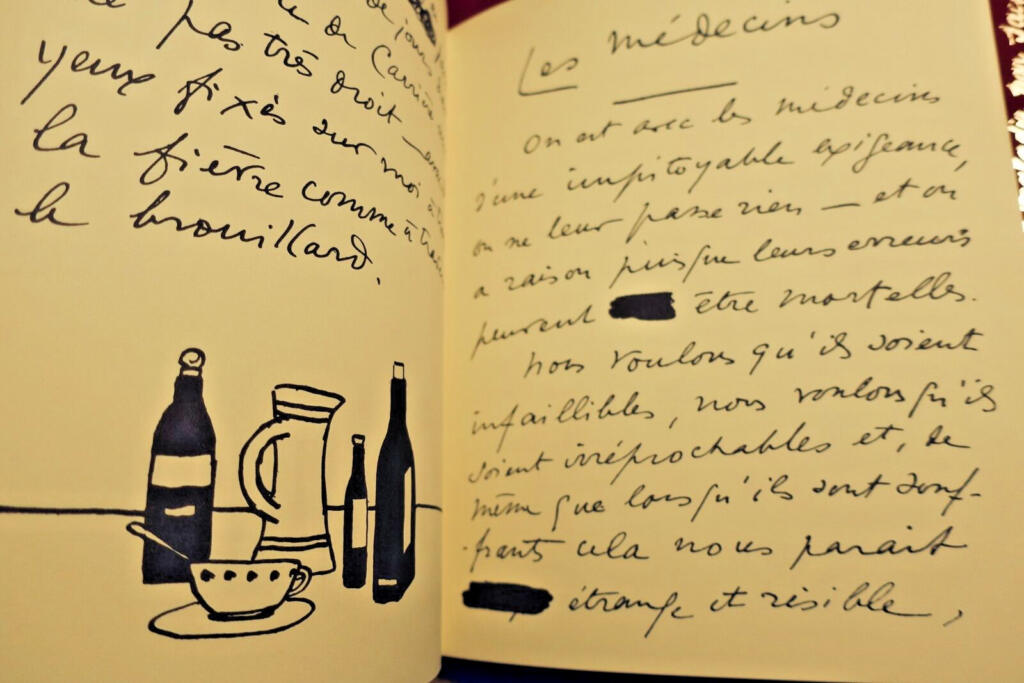 de jours
de Carrière
pas très droit —
yeux fixés sur moi à
la fièvre comme à
le brouillard.
Les médecins
On est avec les médecins
d'une impitoyable exigeance,
on ne leur passe rien — et on
a raison puisque leurs erreurs
peuvent être mortelles.
Nous voulons qu'ils soient
infaillibles, nous voulons qu'ils
soient irréprochables et, de
même que lorsqu'ils sont souf-
-frants cela nous parait
étrange et risible,